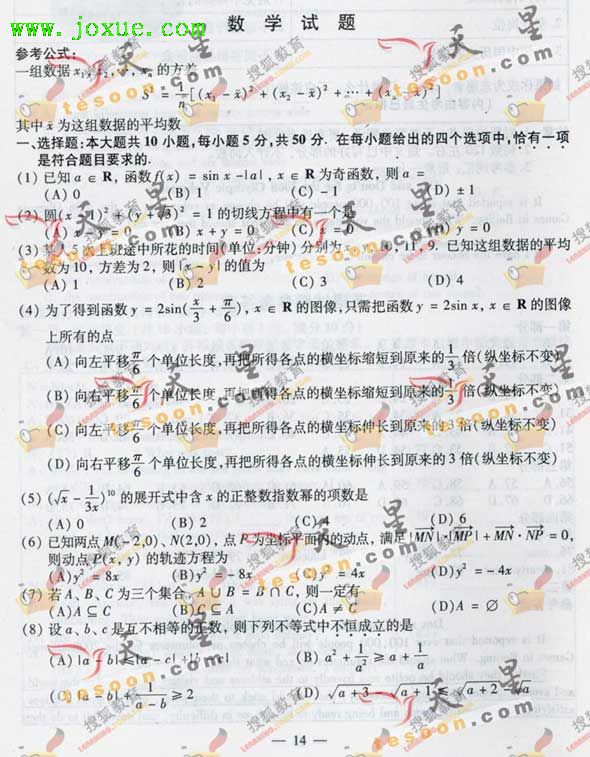 www.joxue.com
数 学 试 题
参考公式:
一组数据 x₁, x₂, …, xₙ 的方差
S² = 1/n[(x₁ - x̄)² + (x₂ - x̄)² + … + (xₙ - x̄)²]
其中 x̄ 为这组数据的平均数
一、选择题:本大题共 10 小题,每小题 5 分,共 50 分. 在每小题给出的四个选项中,恰有一项
是符合题目要求的.
(1) 已知 a ∈ R, 函数 f(x) = sin x - |a|, x ∈ R 为奇函数, 则 a =
(A) 0 (B) 1 (C) - 1 (D) ± 1
(2) 圆 (x - 1)² + (y + √3)² = 1 的切线方程中有一个是
(A) x - y = 0 (B) x + y = 0 (C) x = 0 (D) y = 0
(3) 某人 5 次上班途中所花的时间(单位:分钟) 分别为 x, y, 10, 11, 9. 已知这组数据的平均
数为 10, 方差为 2, 则 |x - y| 的值为
(A) 1 (B) 2 (C) 3 (D) 4
(4) 为了得到函数 y = 2sin(x/3 + π/6), x ∈ R 的图像,只需把函数 y = 2sin x, x ∈ R 的图像
上所有的点
(A) 向左平移 π/6 个单位长度,再把所得各点的横坐标缩短到原来的 1/3 倍(纵坐标不变)
(B) 向右平移 π/6 个单位长度,再把所得各点的横坐标缩短到原来的 1/3 倍(纵坐标不变)
(C) 向左平移 π/6 个单位长度,再把所得各点的横坐标伸长到原来的 3 倍(纵坐标不变)
(D) 向右平移 π/6 个单位长度,再把所得各点的横坐标伸长到原来的 3 倍(纵坐标不变)
(5) (√x - 1/3x)¹⁰ 的展开式中含 x 的正整数指数幂的项数是
(A) 0 (B) 2 (C) 4 (D) 6
(6) 已知两点 M(-2,0)、N(2,0), 点 P 为坐标平面内的动点, 满足 |MN|·|MP| + MN · NP = 0,
则动点 P(x, y) 的轨迹方程为
(A) y² = 8x (B) y² = - 8x (C) y² = 4x (D) y² = - 4x
(7) 若 A、B、C 为三个集合, A ∪ B = B ∩ C, 则一定有
(A) A ⊆ C (B) C ⊆ A (C) A ≠ C (D) A = ∅
(8) 设 a、b、c 是互不相等的正数, 则下列不等式中不恒成立的是
(A) |a - b| ≤ |a - c| + |b - c| (B) a² + 1/a² ≥ a + 1/a
(C) |a - b| + 1/(a - b) ≥ 2 (D) √(a + 3) - √(a + 1) ≤ √(a + 2) - √a
— 14 —
搜狐教育
天星
tesoon.com